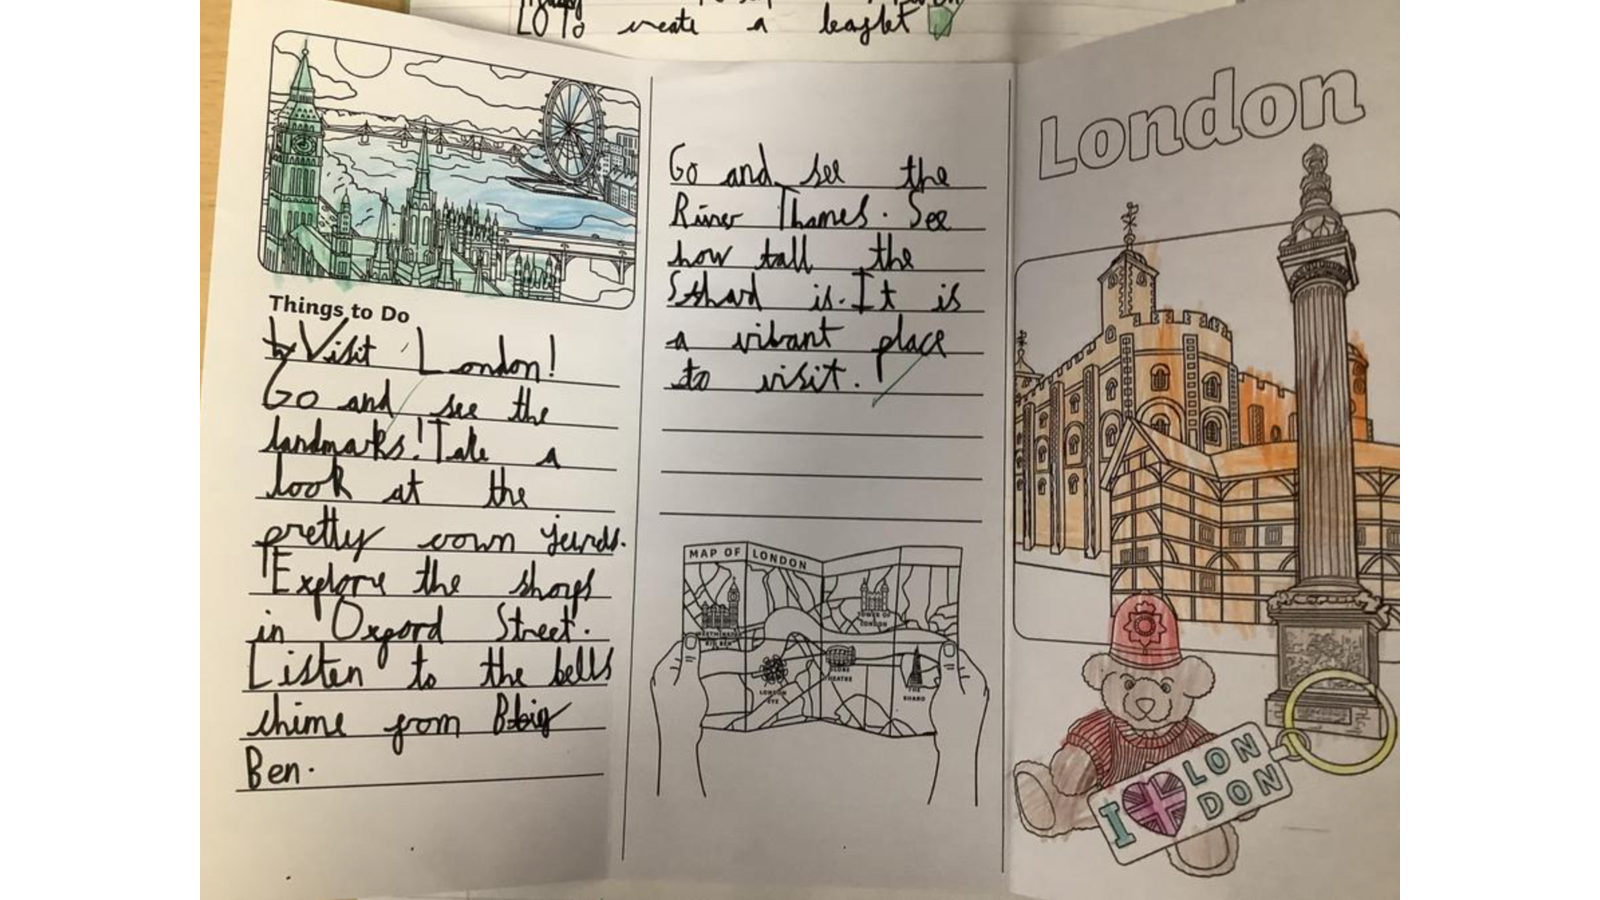 LO To create a leaflet
Things to Do
Visit London!
Go and see the
landmarks! Take a
look at the
pretty crown jewels.
Explore the shops
in Oxford Street.
Listen to the bells
chime from Big
Ben.
Go and see the
River Thames. See
how tall the
Sshard is. It is
a vibrant place
to visit.
MAP OF LONDON
TOWER OF
LONDON
BIG BEN
LONDON
EYE
GLOBE
THEATRE
THE
London
I LON
DON